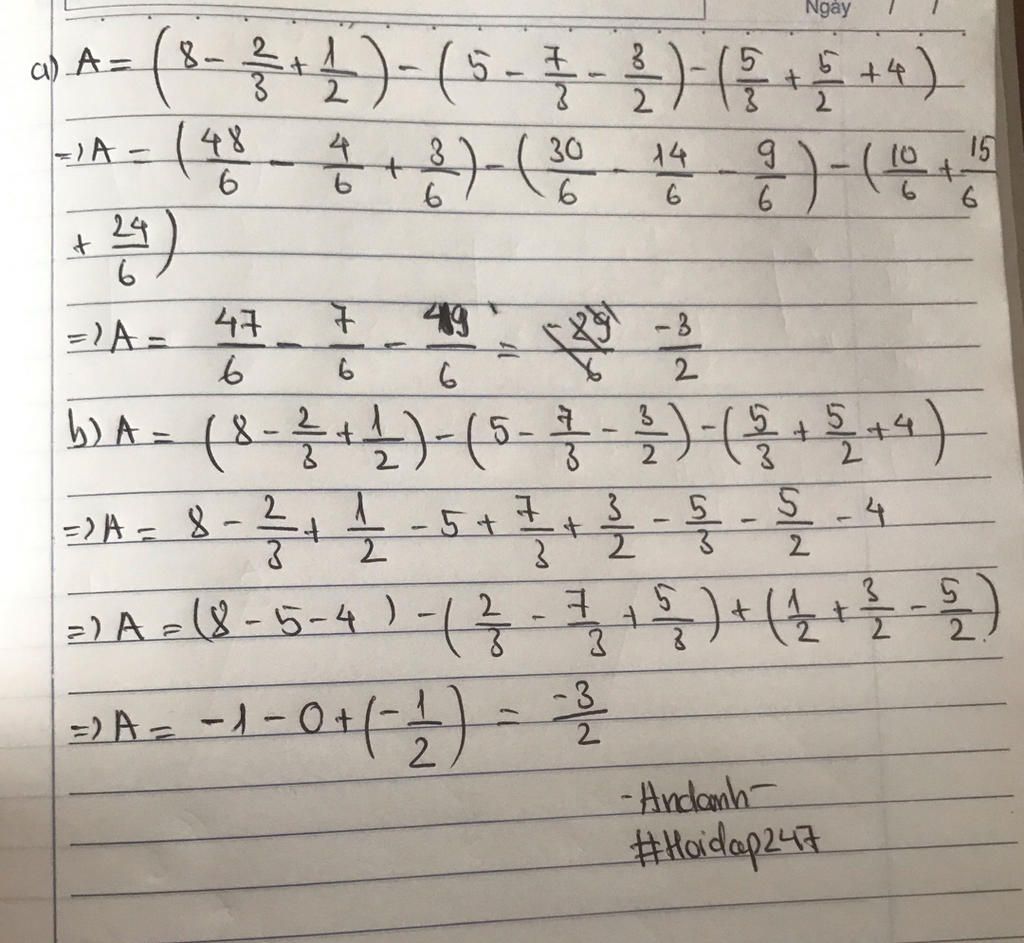 Ngày / /
a) A = (8 - 2/3 + 1/2) - (5 - 7/3 - 3/2) - (5/3 + 5/2 + 4)
=) A = (48/6 - 4/6 + 3/6) - (30/6 - 14/6 - 9/6) - (10/6 + 15/6
+ 24/6)
=) A = 47/6 - 7/6 - 49/6 = -3/2
b) A = (8 - 2/3 + 1/2) - (5 - 7/3 - 3/2) - (5/3 + 5/2 + 4)
=) A = 8 - 2/3 + 1/2 - 5 + 7/3 + 3/2 - 5/3 - 5/2 - 4
=) A = (8 - 5 - 4) - (2/3 - 7/3 + 5/3) + (1/2 + 3/2 - 5/2)
=) A = -1 - 0 + (-1/2) = -3/2
-Andanh-
#Hoidap247